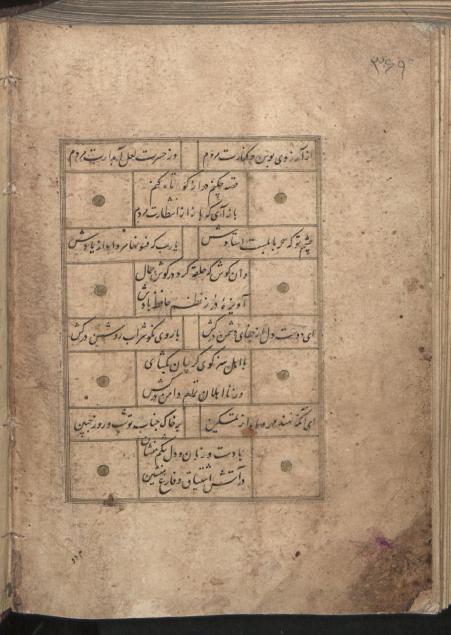 ۳۶۹
از آرزوی بوس و کنارت مردم
وز حسرت لعل آبدارت مردم
قصه چکنم دراز کوتاه کنم
بازآی که باز از انتظارت مردم
چشم تو که سحر بابلست استادش
یارب که فسونها مرواد از یادش
وان کوش که حلقه کرد در کوش جمال
آویزه در ز نظم حافظ بادش
ای دوست دل از جفای دشمن درکش
با روی نکو شراب روشن درکش
با اهل هنر کوی کریبان بکشای
وز نااهلان تمام دامن درکش
ای آنکه نهند مهر و ماه از تمکین
بر خاک جناب تو شب و روز جبین
با دست و زبان و دل تنکم منشان
در آتش اشتیاق و فارغ منشین